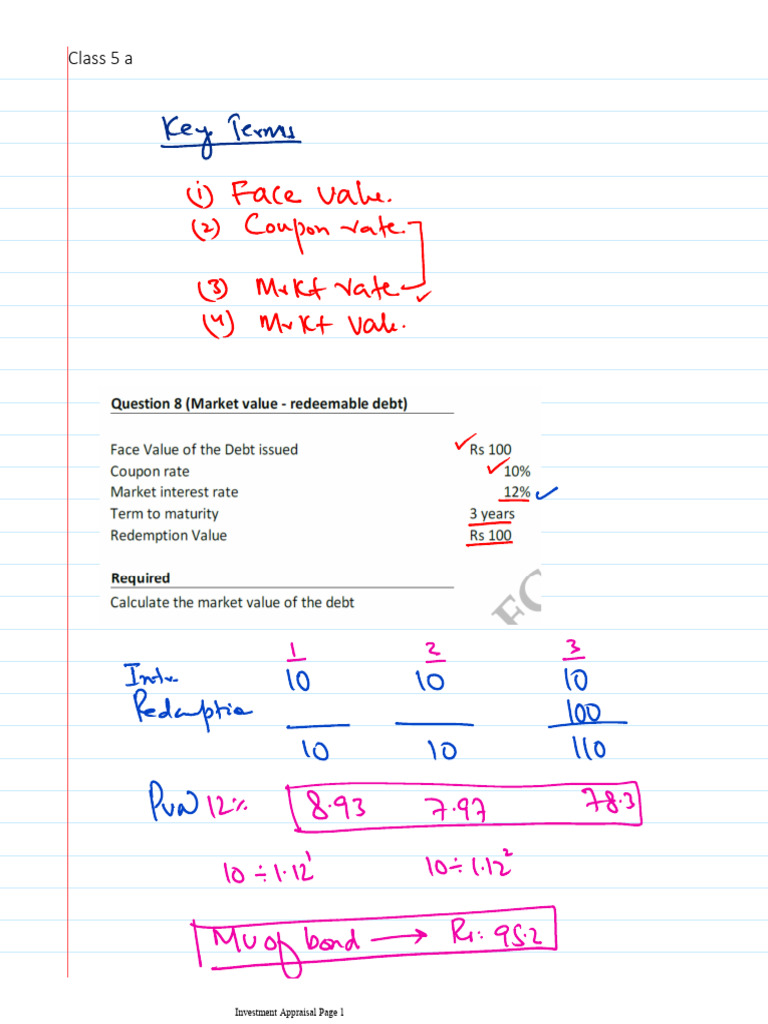 Class 5 a
Key Terms
(1) Face Value.
(2) Coupon rate.
(3) Mrkt rate
(4) Mrkt Value.
Question 8 (Market value - redeemable debt)
Face Value of the Debt issued Rs 100
Coupon rate 10%
Market interest rate 12%
Term to maturity 3 years
Redemption Value Rs 100
Required
Calculate the market value of the debt
1 2 3
10 10 10
Redemption 100
10 10 110
12% 8.93 7.97 78.3
10 ÷ 1.12¹ 10 ÷ 1.12²
MV of bond → Rs: 95.2
Investment Appraisal Page 1